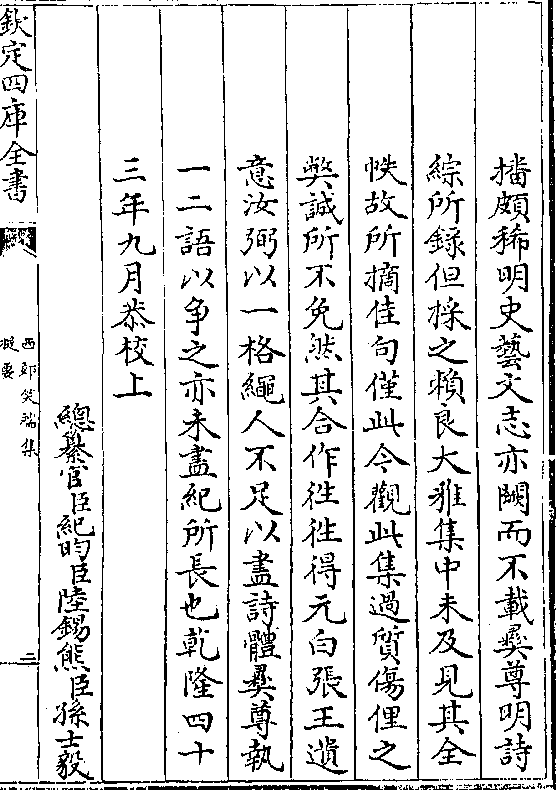 播頗稀明史藝文志亦闕而不載彛尊明詩
綜所錄但採之賴良大雅集中未及見其全
帙故所摘佳句僅此今觀此集過質傷俚之
弊誠所不免然其合作徃徃得元白張王遺
意汝弼以一格繩人不足以盡詩體彛尊執
一二語以爭之亦未盡紀所長也乾隆四十
三年九月恭校上
總纂官臣紀昀臣陸錫熊臣孫士毅
欽定四庫全書
西郊笑端集
提要
二